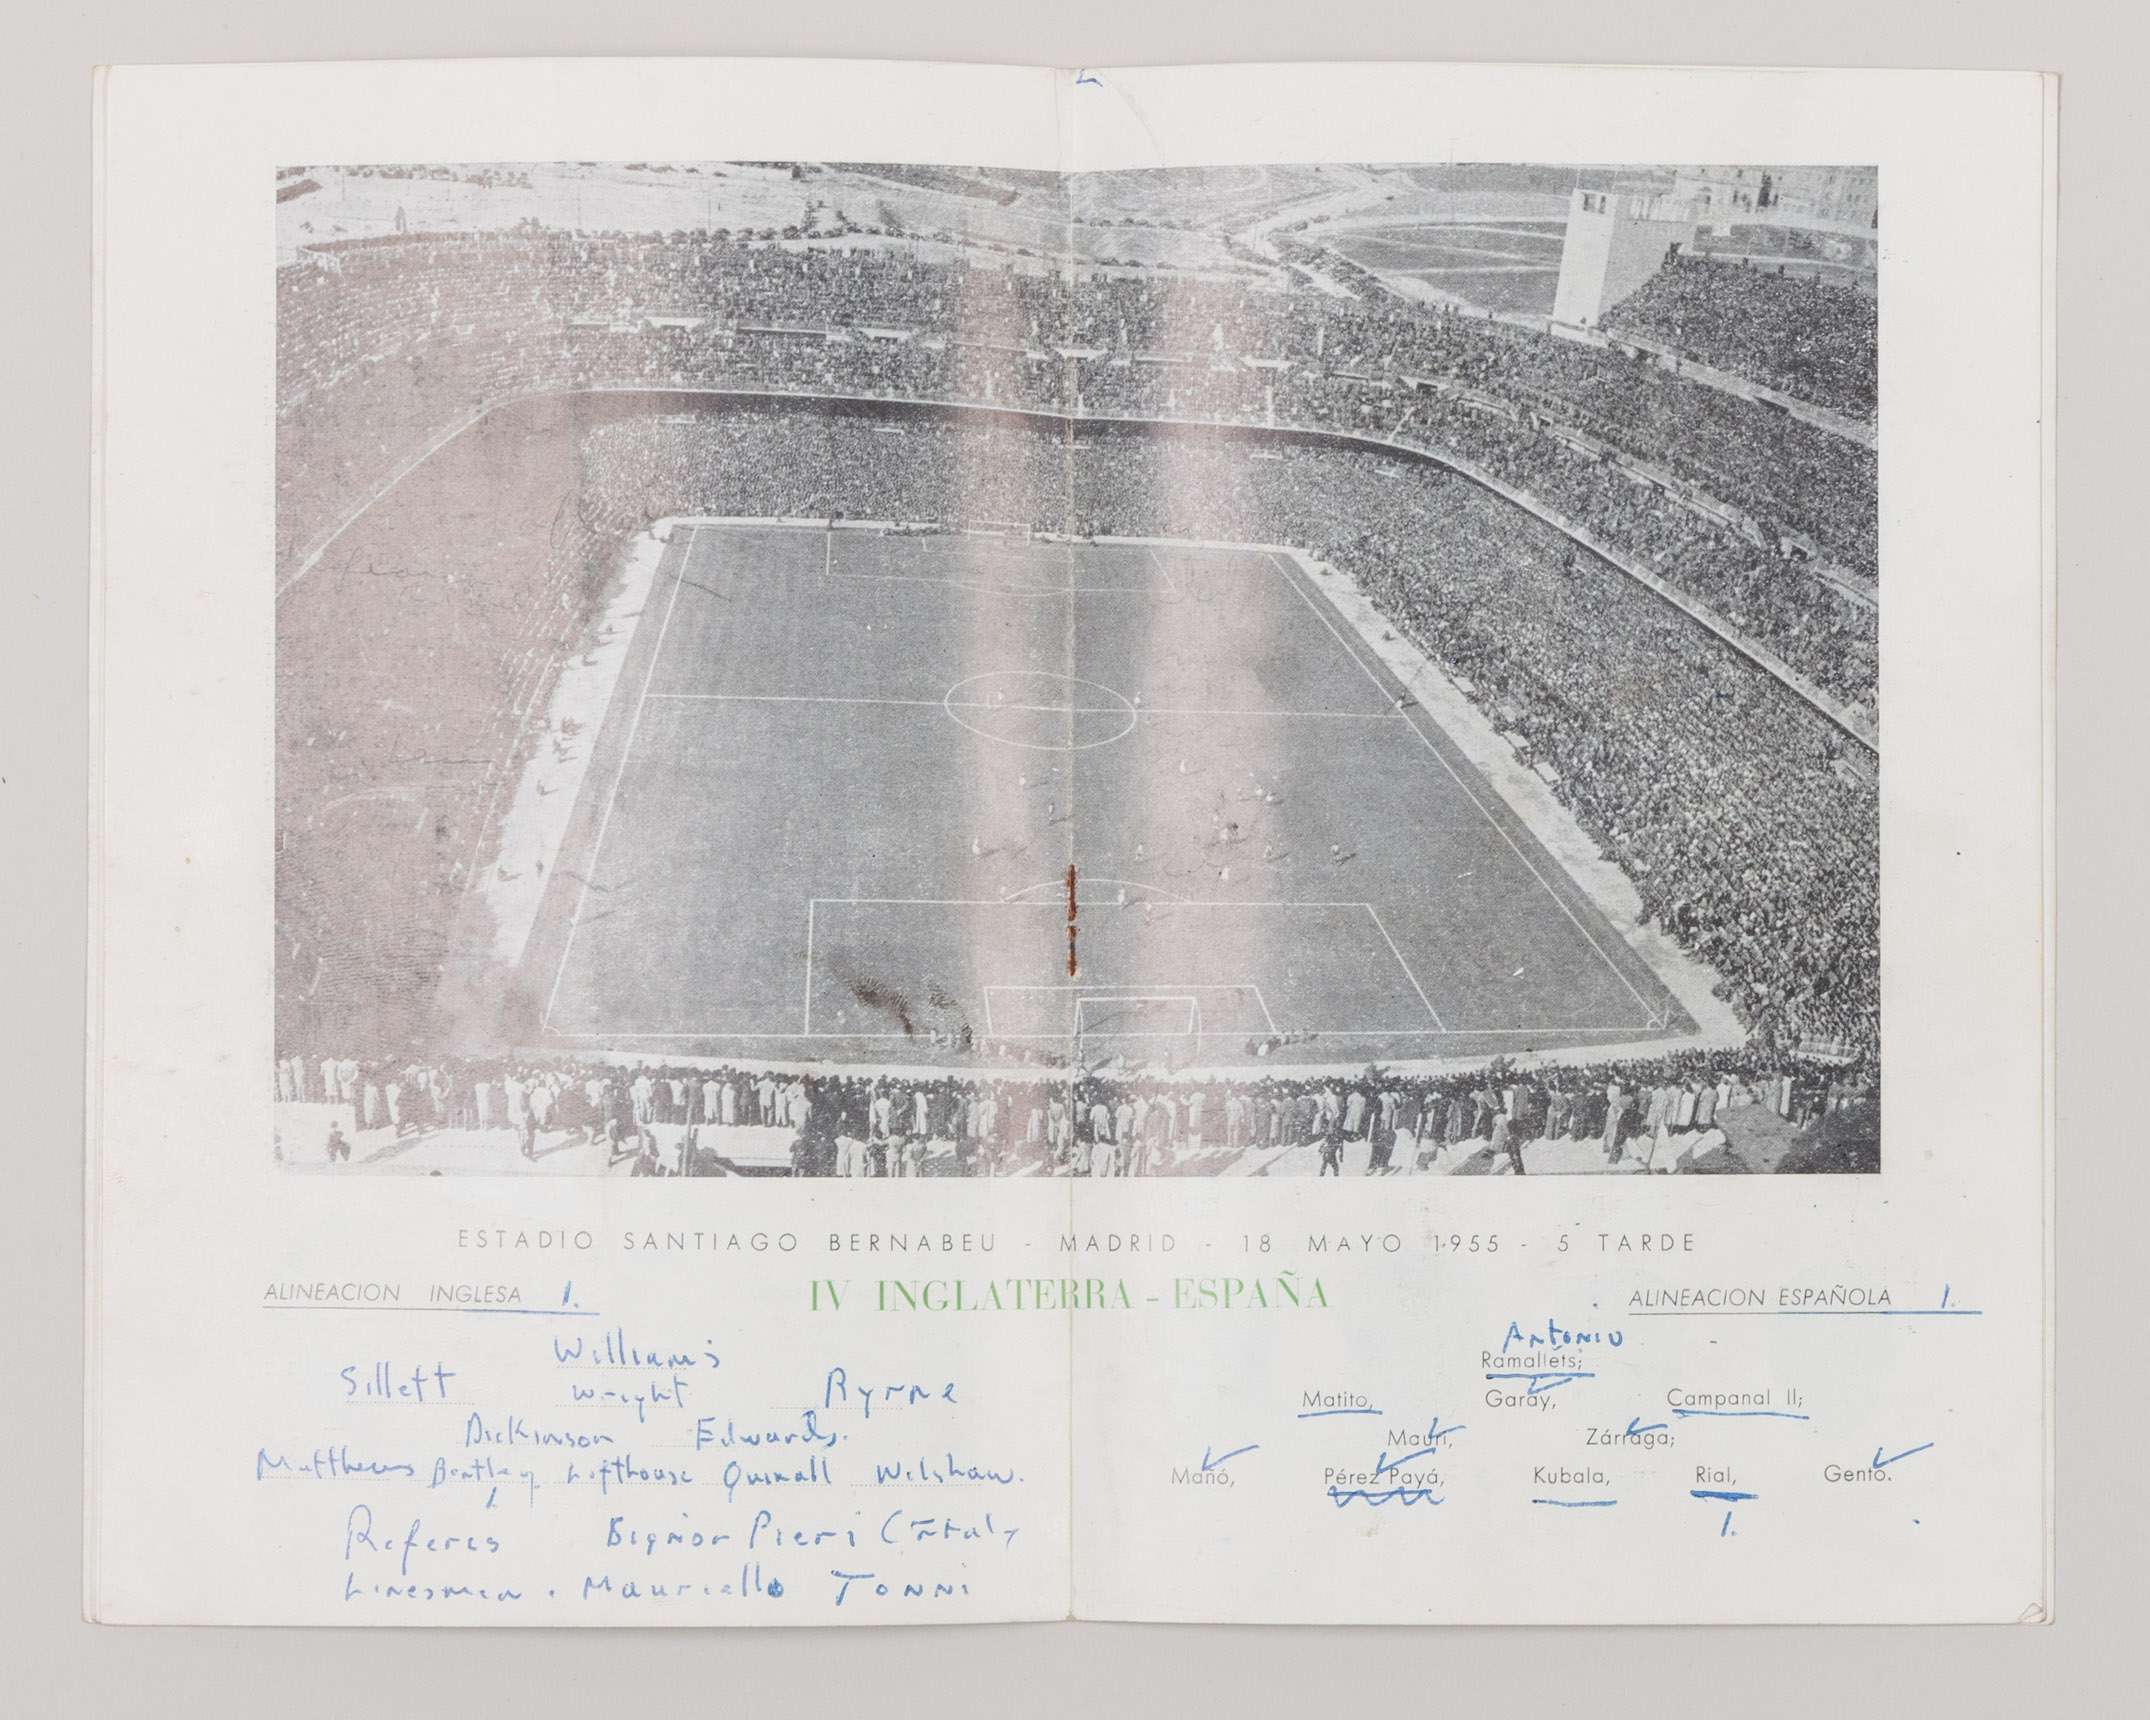 ESTADIO SANTIAGO BERNABEU - MADRID - 18 MAYO 1955 - 5 TARDE
IV INGLATERRA - ESPAÑA
ALINEACION INGLESA 1.
Williams
Sillett Wright Byrne
Dickinson Edwards.
Matthews Bentley Lofthouse Quixall Wilshaw.
1
Referes Signor Pieri (Italy
Linesmen. Mauriello Tonni
ALINEACION ESPAÑOLA 1.
Antonio
Ramallets;
Matito, Garay, Campanal II;
Mauri, Zárraga;
Mañó, Pérez Payá, Kubala, Rial, Gento.
1.